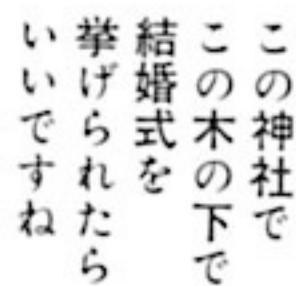 この神社で
この木の下で
結婚式を
挙げられたら
いいですね